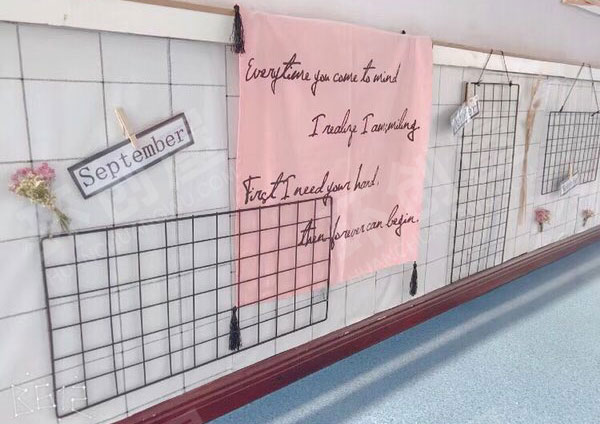 September
Everytime you come to mind
I realize I am miling.
First I need your hand.
then forever can begin.